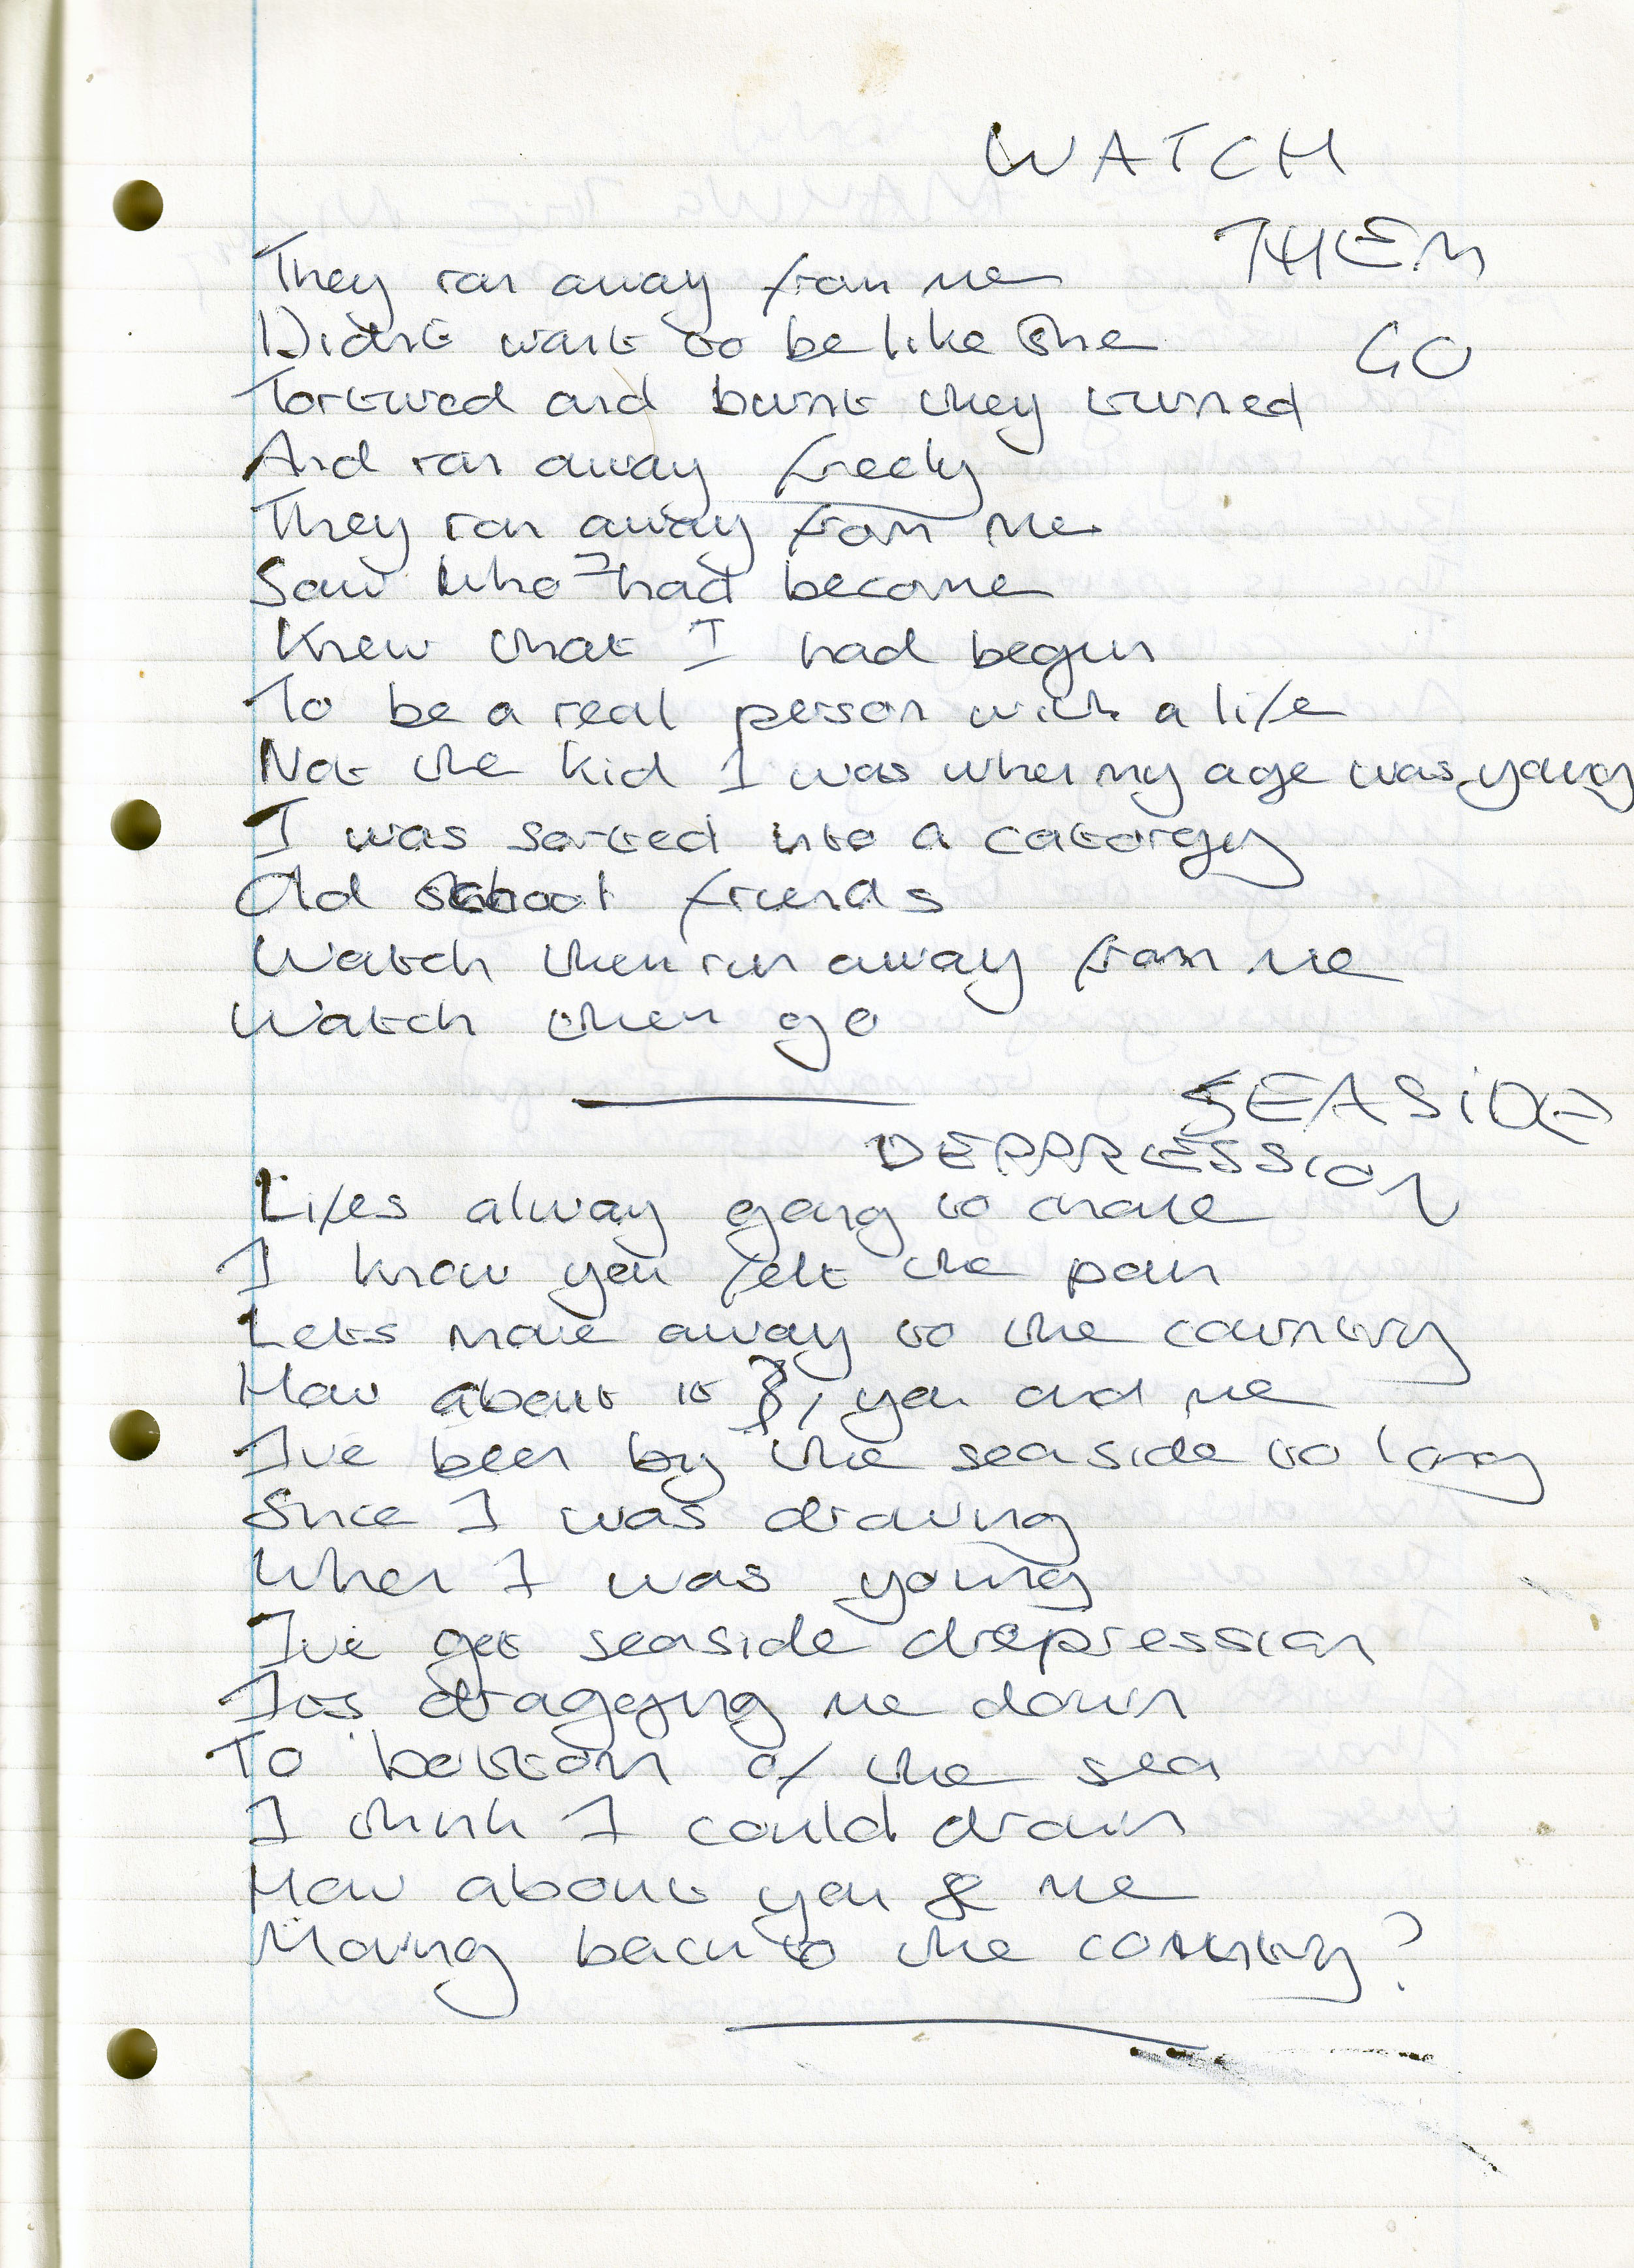 WATCH
THEM
GO
They ran away from me
Didnt want to be like the
Tortured and burnt they turned
And ran away freely
They ran away from me
Saw who I had become
Knew that I had begun
To be a real person with a life
Not the kid I was when my age was young
I was sorted into a catorgy
Old school friends
Watch them run away from me
Watch them go
SEASIDE
DEPPRESSION
Lifes alway going to change
I know you felt the pain
Lets move away to the country
How about it, you and me
Ive been by the seaside to long
Since I was drawing
When I was young
Ive got seaside drepression
Its dragging me down
To bottom of the sea
I think I could drown
How about you & me
Moving back to the country?